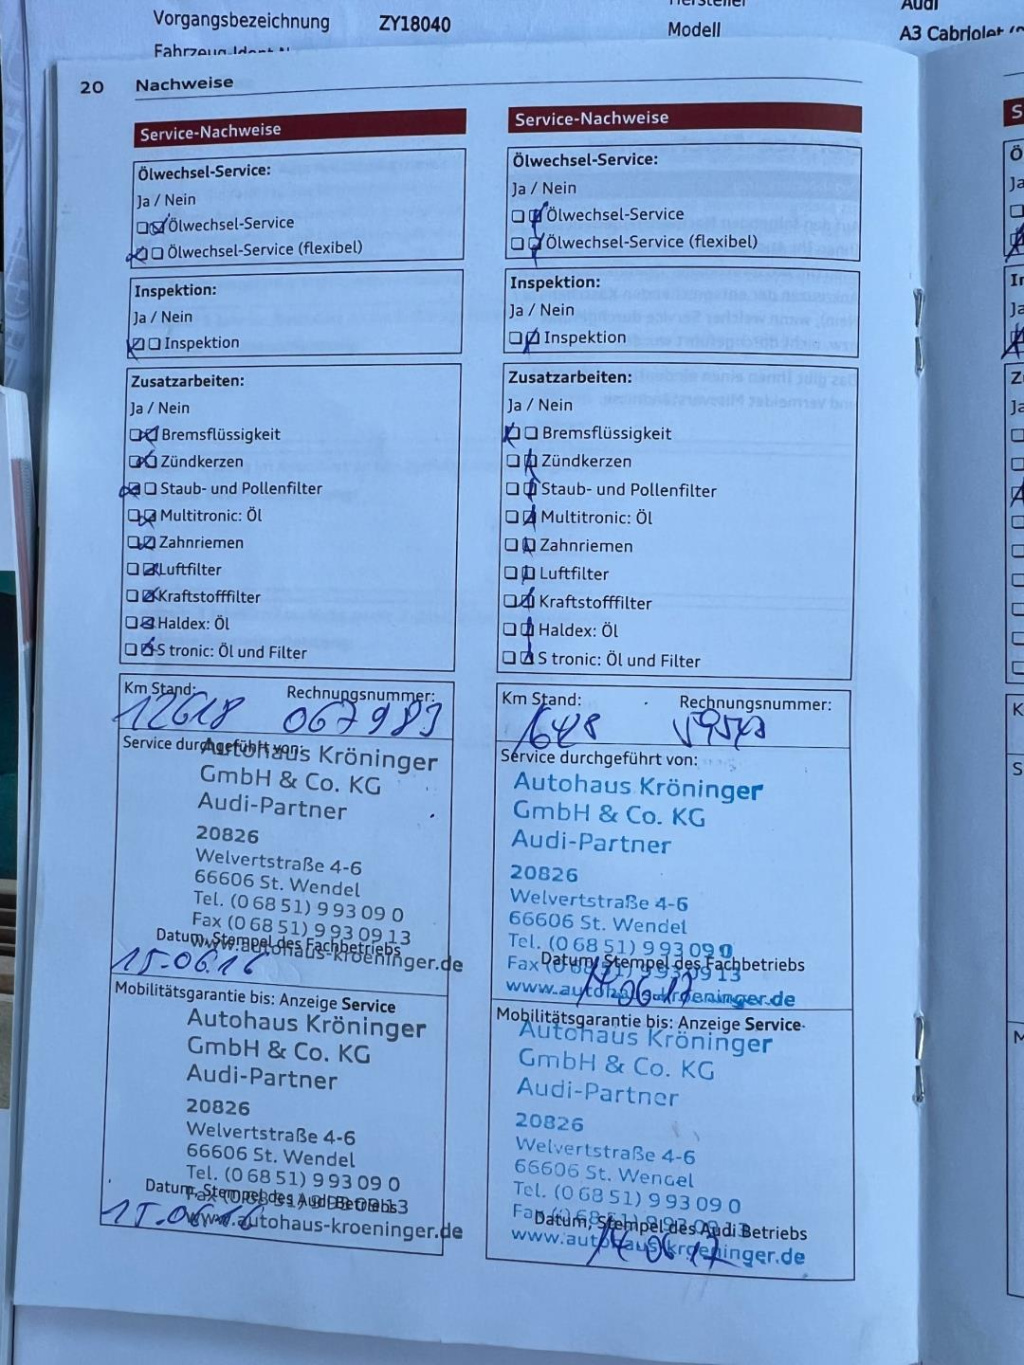 Vorgangsbezeichnung ZY18040
Modell
A3 Cabriolet
20 Nachweise
Service-Nachweise
Ölwechsel-Service:
Ja / Nein
Ölwechsel-Service
Ölwechsel-Service (flexibel)
Inspektion:
Ja / Nein
Inspektion
Zusatzarbeiten:
Ja / Nein
Bremsflüssigkeit
Zündkerzen
Staub- und Pollenfilter
Multitronic: Öl
Zahnriemen
Luftfilter
Kraftstofffilter
Haldex: Öl
S tronic: Öl und Filter
Km Stand: Rechnungsnummer:
12618 067983
Service durchgeführt von:
Autohaus Kröninger
GmbH & Co. KG
Audi-Partner
20826
Welvertstraße 4-6
66606 St. Wendel
Tel. (0 68 51) 9 93 09 0
Fax (0 68 51) 9 93 09 13
www.autohaus-kroeninger.de
Datum, Stempel des Fachbetriebs
15.06.16
Mobilitätsgarantie bis: Anzeige Service
Autohaus Kröninger
GmbH & Co. KG
Audi-Partner
20826
Welvertstraße 4-6
66606 St. Wendel
Tel. (0 68 51) 9 93 09 0
Fax (0 68 51) 9 93 09 13
www.autohaus-kroeninger.de
Datum, Stempel des Audi Betriebs
15.06.16
Service-Nachweise
Ölwechsel-Service:
Ja / Nein
Ölwechsel-Service
Ölwechsel-Service (flexibel)
Inspektion:
Ja / Nein
Inspektion
Zusatzarbeiten:
Ja / Nein
Bremsflüssigkeit
Zündkerzen
Staub- und Pollenfilter
Multitronic: Öl
Zahnriemen
Luftfilter
Kraftstofffilter
Haldex: Öl
S tronic: Öl und Filter
Km Stand: Rechnungsnummer:
Service durchgeführt von:
Autohaus Kröninger
GmbH & Co. KG
Audi-Partner
20826
Welvertstraße 4-6
66606 St. Wendel
Tel. (0 68 51) 9 93 09 0
Fax (0 68 51) 9 93 09 13
www.autohaus-kroeninger.de
Datum, Stempel des Fachbetriebs
14.06.17
Mobilitätsgarantie bis: Anzeige Service
Autohaus Kröninger
GmbH & Co. KG
Audi-Partner
20826
Welvertstraße 4-6
66606 St. Wendel
Tel. (0 68 51) 9 93 09 0
Fax (0 68 51) 9 93 09 13
www.autohaus-kroeninger.de
Datum, Stempel des Audi Betriebs
14.06.17